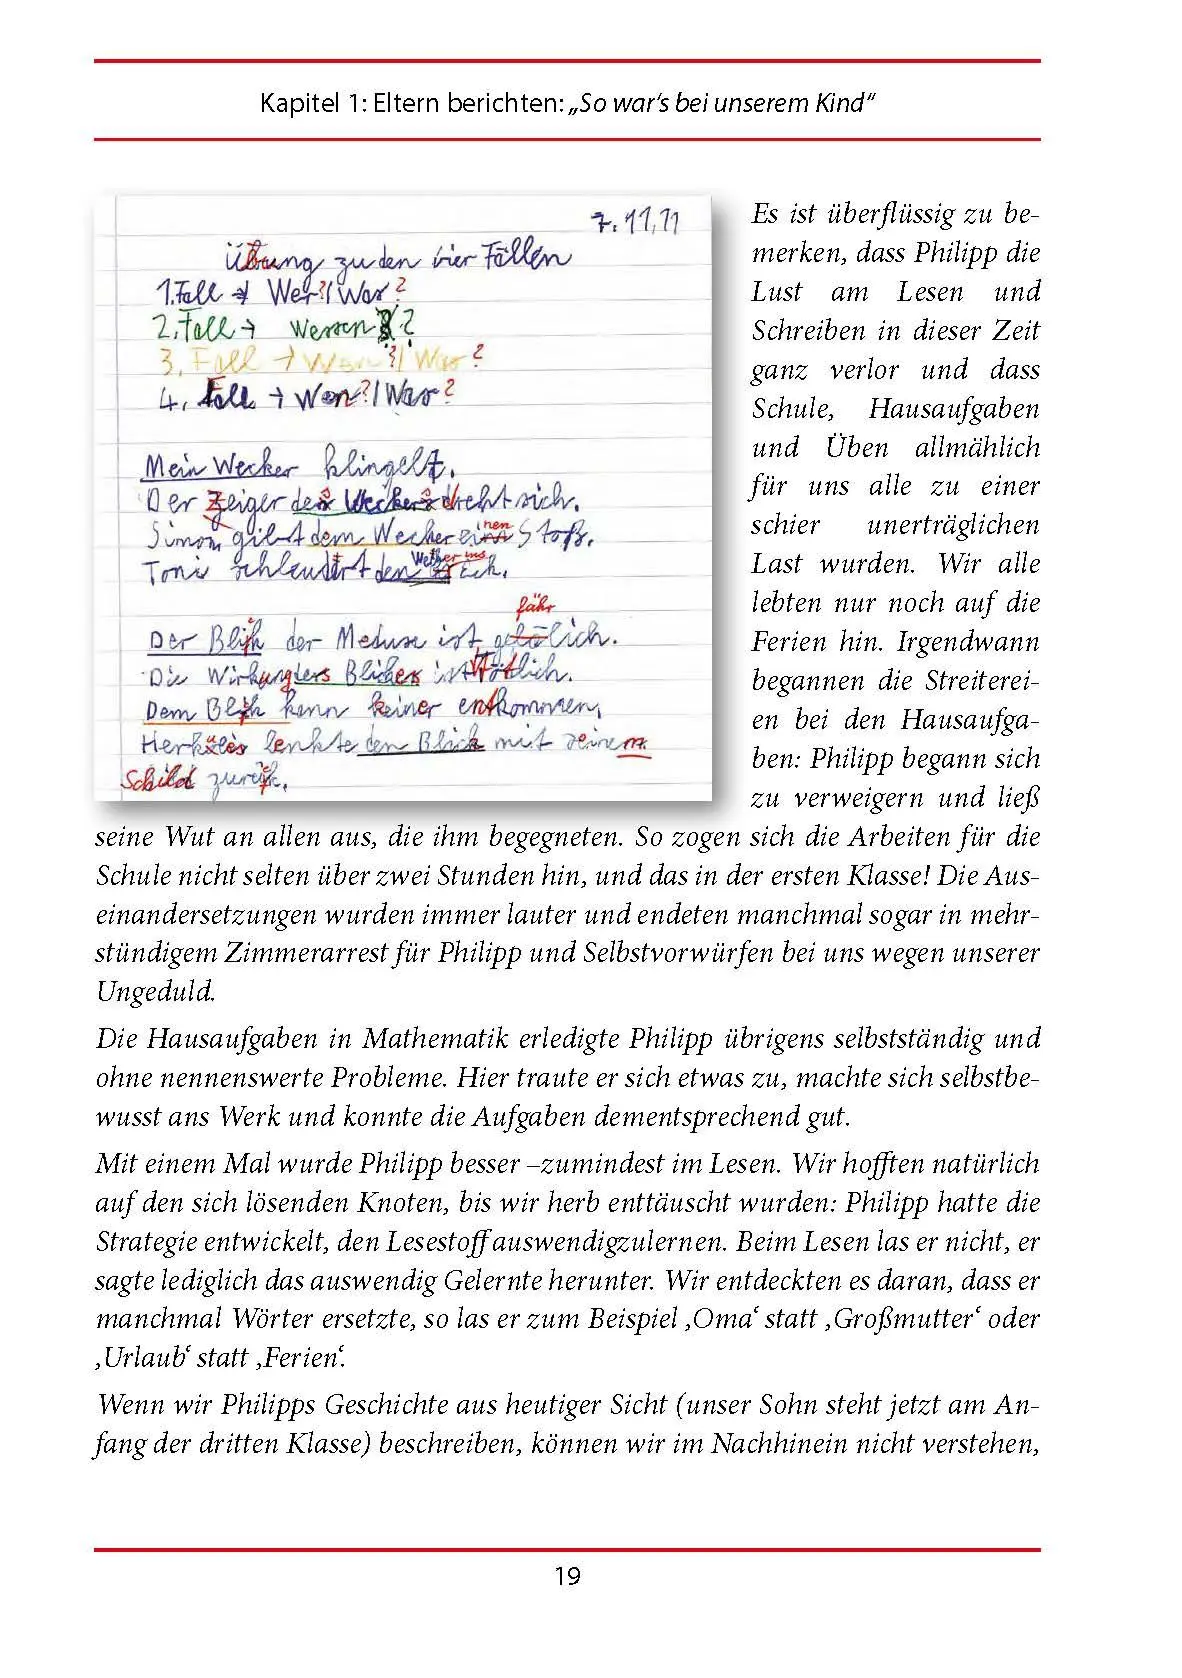 Kapitel 1: Eltern berichten: „So war‘s bei unserem Kind“
7.11.11
Übung zu den vier Fällen
1. Fall → Wer? / Was?
2. Fall → Wessen?
3. Fall → Wem? / Was?
4. Fall → Wen? / Was?
Mein Wecker klingelt.
Der Zeiger des Weckers dreht sich.
Simon gibt dem Wecker einen Stoß.
Toni schleudert den Wecker ins
Der Blick der Meduse ist gefährlich.
Die Wirkung des Blickes ist tötlich.
Dem Blick kann keiner entkommen,
lenkte den Blick mit seinem
Schild zurück.
Es ist überflüssig zu be-
merken, dass Philipp die
Lust am Lesen und
Schreiben in dieser Zeit
ganz verlor und dass
Schule, Hausaufgaben
und Üben allmählich
für uns alle zu einer
schier unerträglichen
Last wurden. Wir alle
lebten nur noch auf die
Ferien hin. Irgendwann
begannen die Streiterei-
en bei den Hausaufga-
ben: Philipp begann sich
zu verweigern und ließ
seine Wut an allen aus, die ihm begegneten. So zogen sich die Arbeiten für die
Schule nicht selten über zwei Stunden hin, und das in der ersten Klasse! Die Aus-
einandersetzungen wurden immer lauter und endeten manchmal sogar in mehr-
stündigem Zimmerarrest für Philipp und Selbstvorwürfen bei uns wegen unserer
Ungeduld.
Die Hausaufgaben in Mathematik erledigte Philipp übrigens selbstständig und
ohne nennenswerte Probleme. Hier traute er sich etwas zu, machte sich selbstbe-
wusst ans Werk und konnte die Aufgaben dementsprechend gut.
Mit einem Mal wurde Philipp besser –zumindest im Lesen. Wir hofften natürlich
auf den sich lösenden Knoten, bis wir herb enttäuscht wurden: Philipp hatte die
Strategie entwickelt, den Lesestoff auswendigzulernen. Beim Lesen las er nicht, er
sagte lediglich das auswendig Gelernte herunter. Wir entdeckten es daran, dass er
manchmal Wörter ersetzte, so las er zum Beispiel ‚Oma‘ statt ‚Großmutter‘ oder
‚Urlaub‘ statt ‚Ferien‘.
Wenn wir Philipps Geschichte aus heutiger Sicht (unser Sohn steht jetzt am An-
fang der dritten Klasse) beschreiben, können wir im Nachhinein nicht verstehen,
19